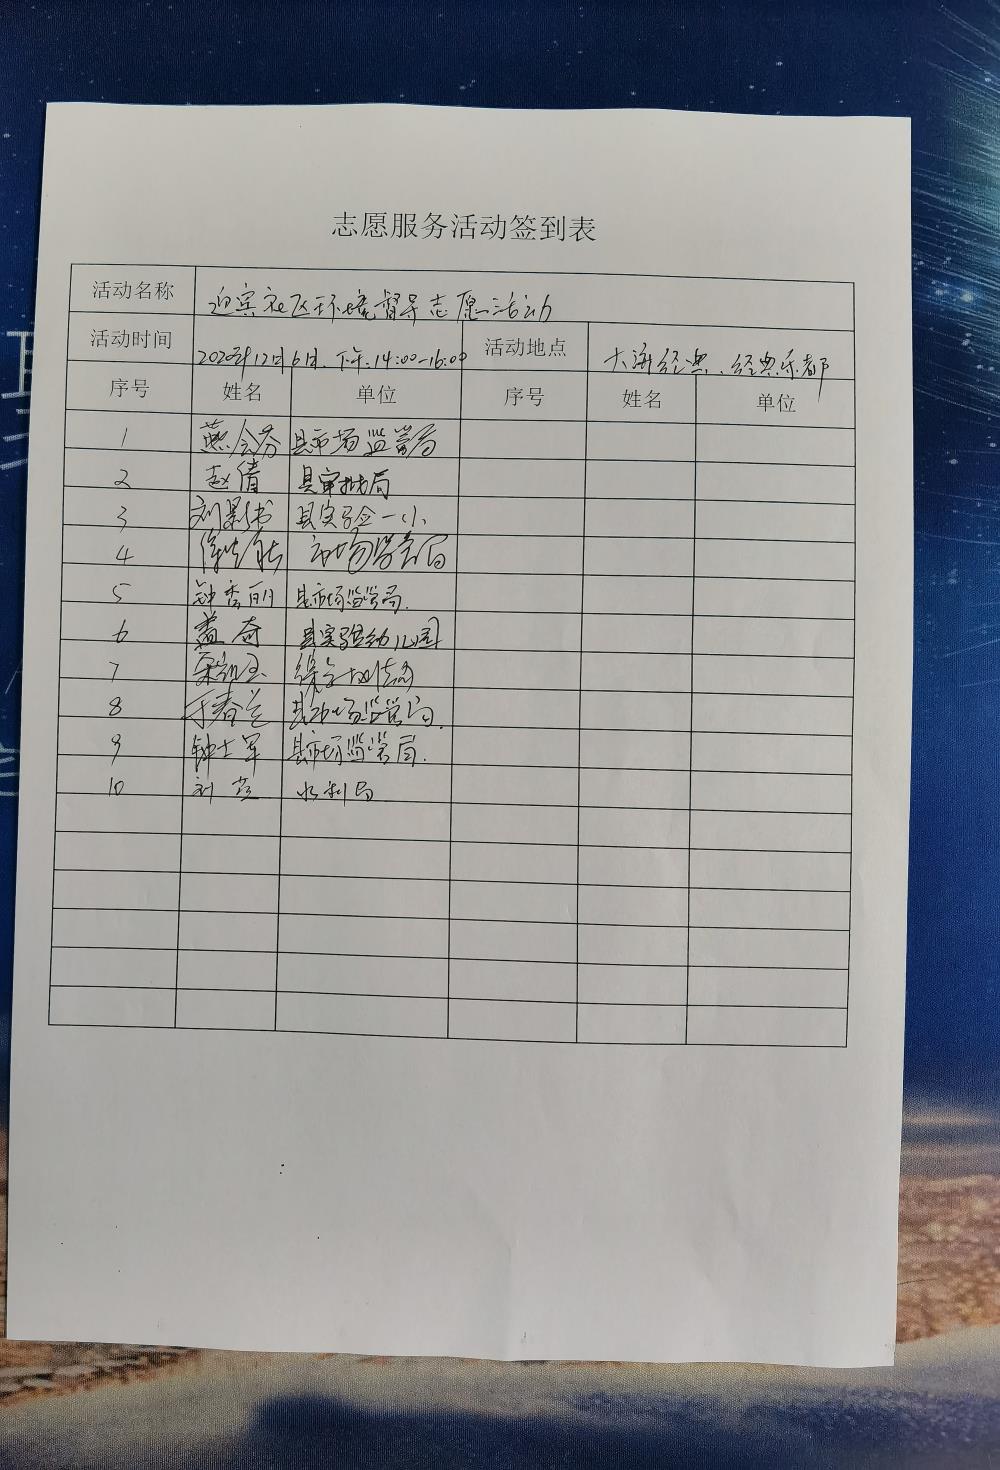 志愿服务活动签到表
活动名称 迎宾社区环境督导志愿活动
活动时间 2020年12月6日、下午:14:00-16:00 活动地点 大海经典、经典乐都
序号 姓名 单位 序号 姓名 单位
1 燕会芬 县市场监管局
2 赵倩 县审批局
3 刘影书 县实验一小
4 市场监管局
5 钟秀丽 县市场监管局.
6 盖奇 县实验幼儿园
7
8 于春兰 县市场监管局.
9 钟士军 县市场监管局.
10 刘芸 水利局